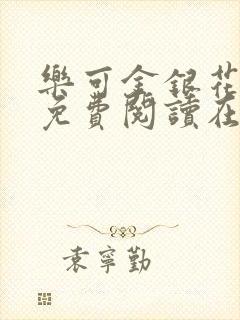 樂可金銀花
免費閱讀在
袁寧勤